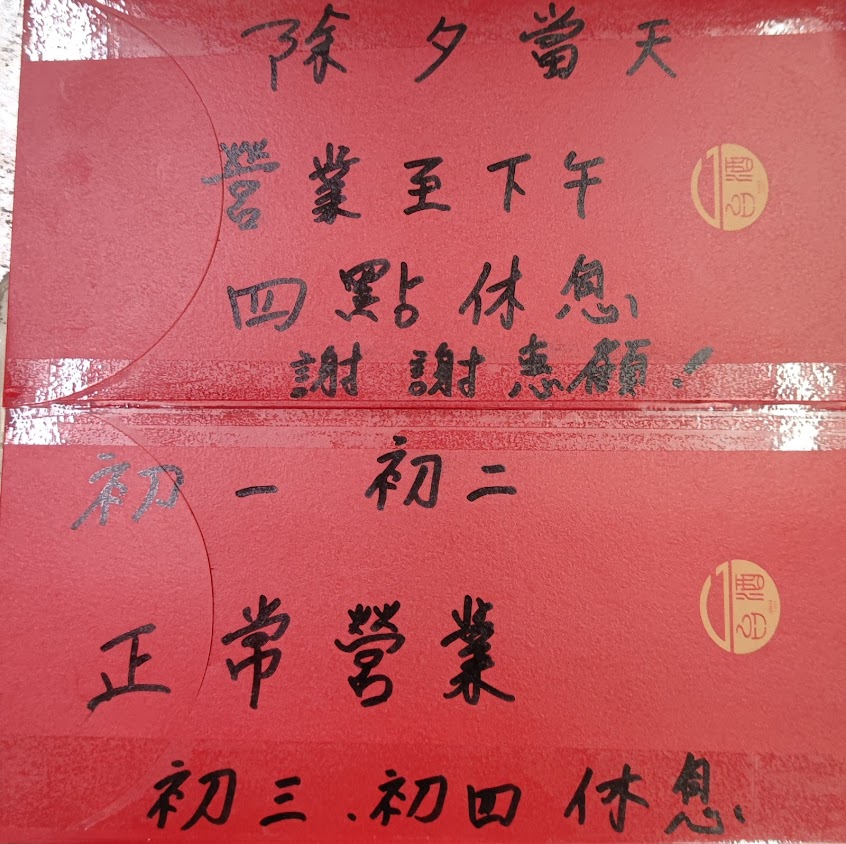 除夕當天
營業至下午
四點休息
謝謝惠顧!
初一 初二
正常營業
初三、初四休息